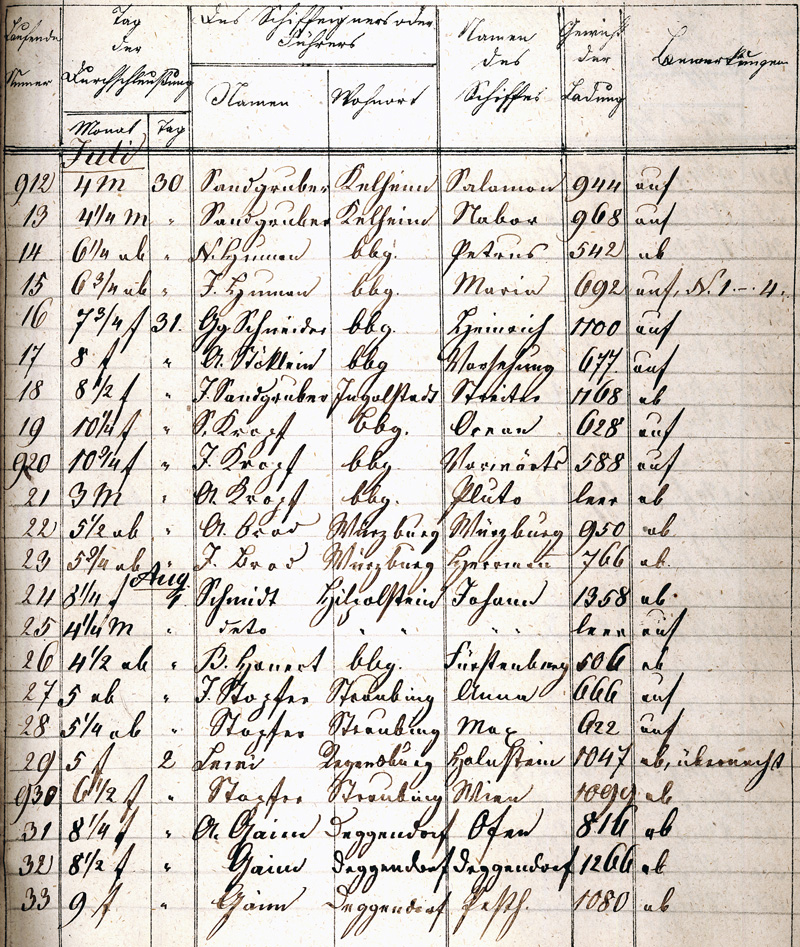 Laufende Numer | Tag der Durchschleußung | Des Schiffeigners oder Führers | Namen des Schiffes | Gewicht der Ladung | Bemerkungen
Monat | Tag | Namen | Wohnort
Juli
912 4 M 30 Sandgruber Kelheim Salamon 944 auf
13 4 1/4 M " Sandgruber Kelheim Nabor 968 auf
14 6 1/4 ab " N. Human bbg. Petrus 542 ab
15 6 3/4 ab " J. Human bbg. Maria 692 auf, N. 1 - 4.
16 7 3/4 f 31. Gg Schneider bbg. Heinrich 700 auf
17 8 f " A. Stöcklein bbg Vorsehung 677 auf
18 8 1/2 f " J. Sandgruber Ingolstadt Streiter 768 ab
19 10 1/4 f " S. Kropf bbg. Ocean 628 auf
920 10 3/4 f " J. Kropf bbg Vorwärts 588 auf
21 3 M " A. Kropf bbg. Pluto leer ab
22 5 1/2 ab " A. Brod Würzburg Würzburg 950 ab
23 5 3/4 ab " J. Brod Würzburg Herrman 766 ab
Aug
24 8 1/4 f 1. Schmidt Hilpolstein Johann 1358 ab.
25 4 1/4 M " deto " " " leer auf
26 4 1/2 ab " B. Honert bbg. Fürstenberg 506 ab
27 5 ab " J. Stopfer Straubing Anna 666 auf
28 5 1/4 ab " Stopfer Straubing Max 622 auf
29 5 f 2 Regensburg Holnstein 1047 ab, übernacht
930 6 1/2 f " Stopfer Straubing Wien 1099 ab
31 8 1/4 f " A. Gäim Deggendorf Ofen 816 ab
32 8 1/2 f " Gäim Deggendorf Deggendorf 1266 ab
33 9 f " Gäim Deggendorf Pesth. 1080 ab